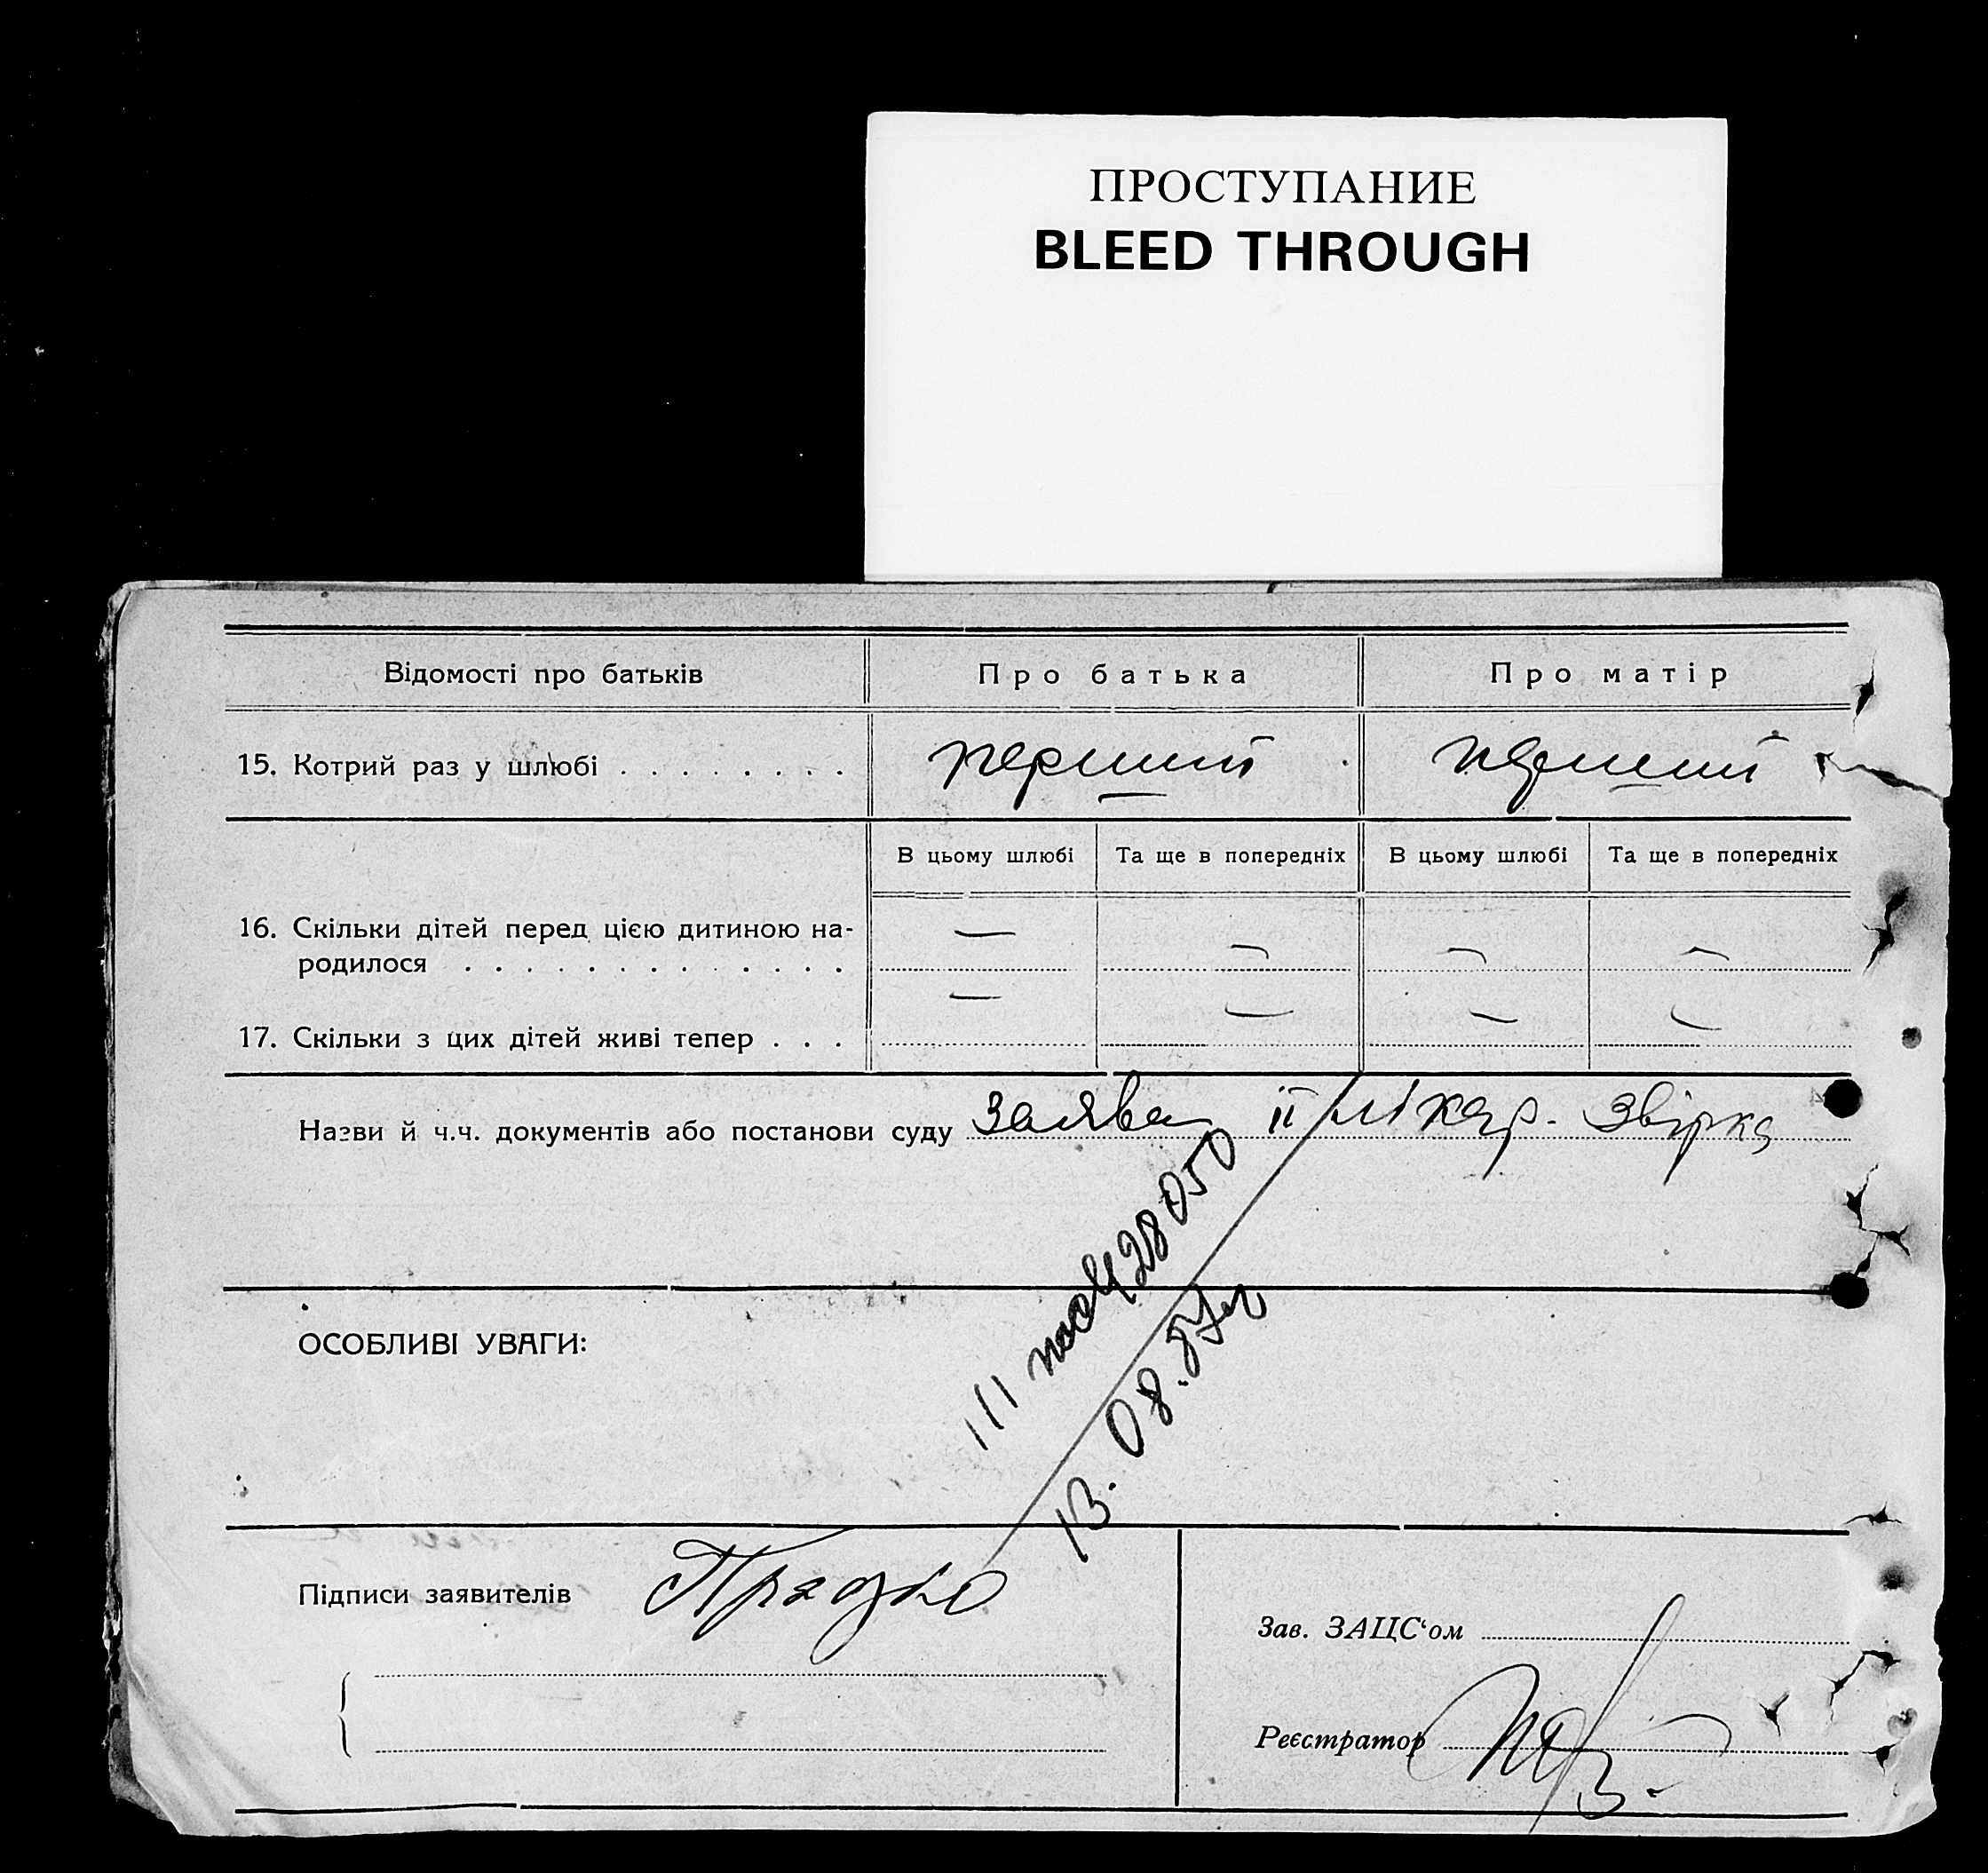 ПРОСТУПАНИЕ
BLEED THROUGH
Відомості про батьків Про батька Про матір
15. Котрий раз у шлюбі . . . . . . . . перший перший
В цьому шлюбі Та ще в попередніх В цьому шлюбі Та ще в попередніх
16. Скільки дітей перед цією дитиною на-
родилося . . . . . . . . . . . . . — — — —
17. Скільки з цих дітей живі тепер . . . — — — —
Назви й ч.ч. документів або постанови суду заява
28050
ОСОБЛИВІ УВАГИ:
13. 08.
Підписи заявителів
Зав. ЗАЦС‘ом
Реєстратор